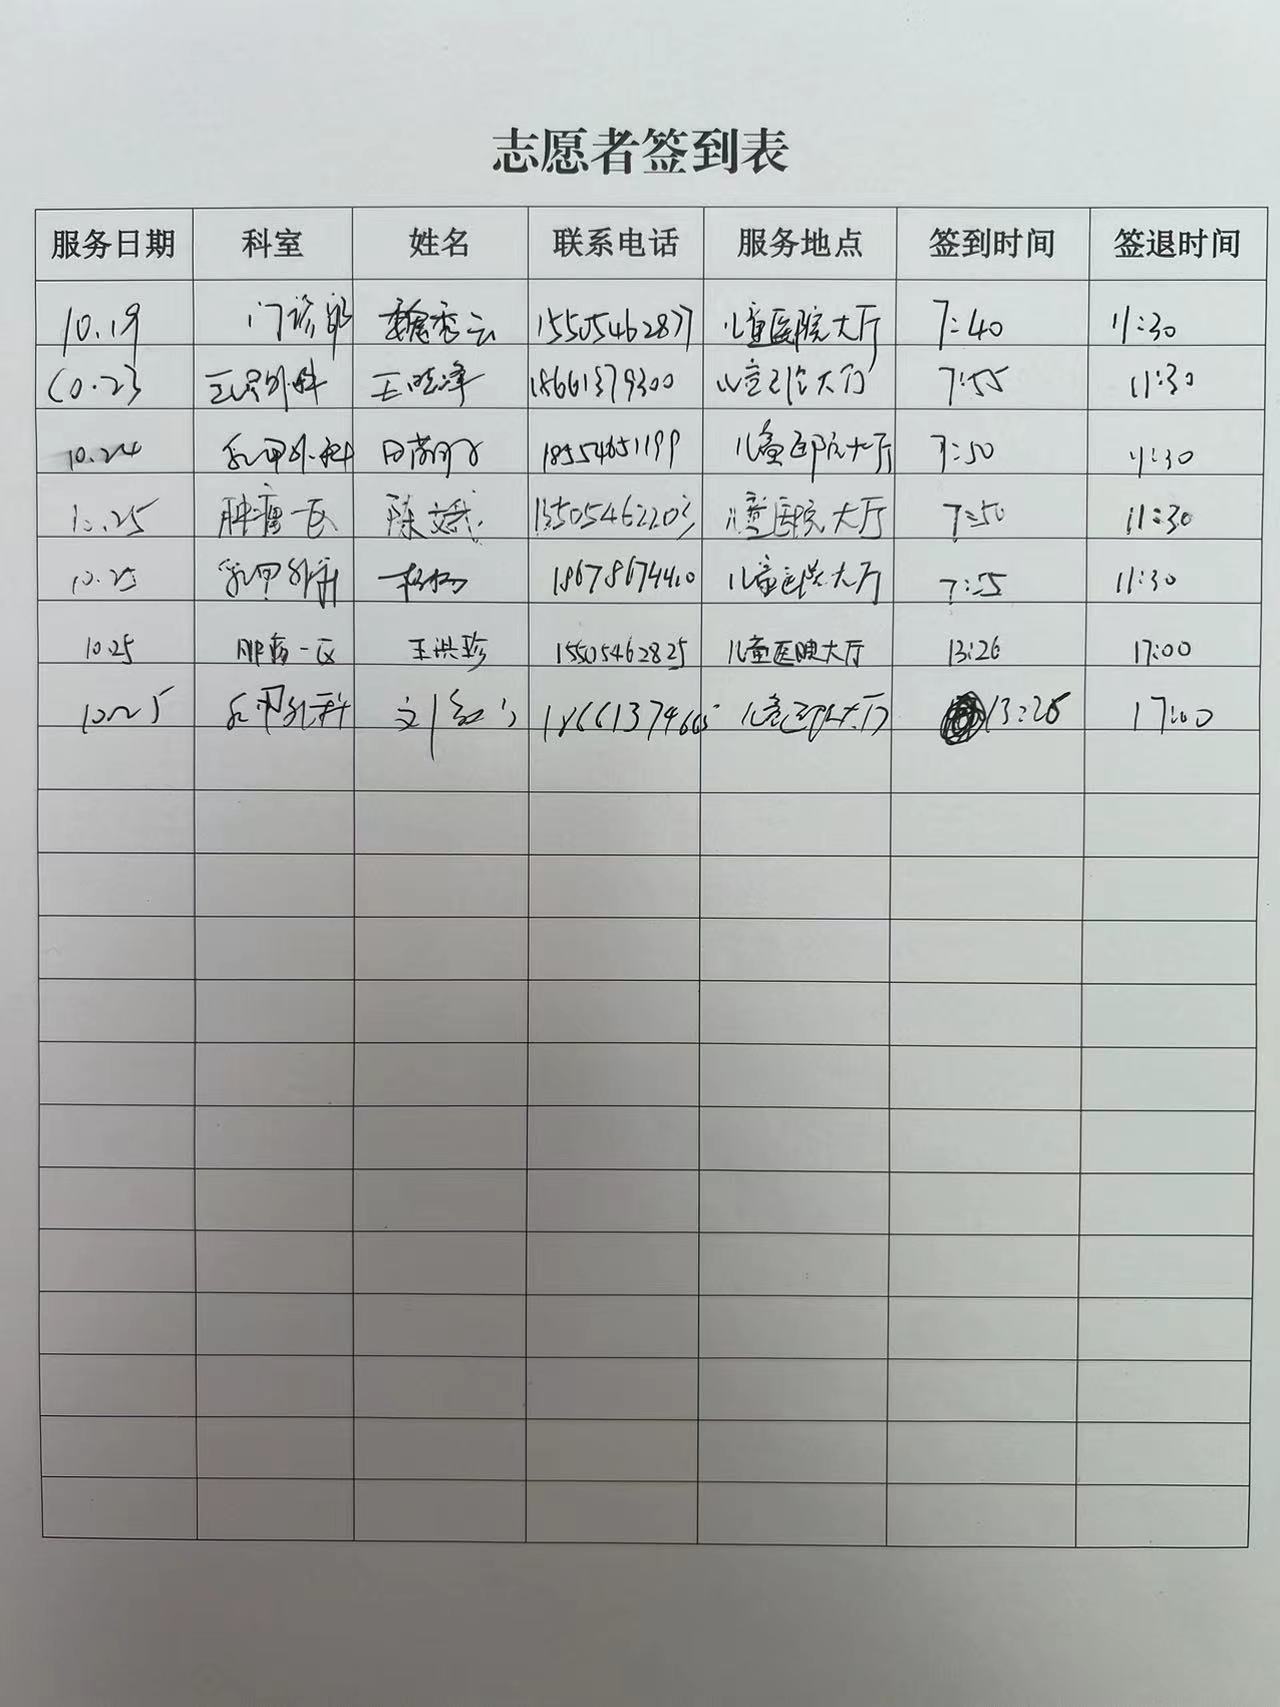 志愿者签到表
服务日期 科室 姓名 联系电话 服务地点 签到时间 签退时间
10.19 门诊部 魏秀云 15505462877 儿童医院大厅 7:40 11:30
10.23 王晓萍 18661379300 儿童医院大厅 7:55 11:30
10.24 乳甲外科 18554651199 儿童医院大厅 7:50 11:30
10.25 肿瘤一区 陈文娥 13505462203 儿童医院大厅 7:50 11:30
10.25 乳甲外科 杨杨 18678674410 儿童医院大厅 7:55 11:30
10.25 肿瘤一区 王洪珍 15505462825 儿童医院大厅 13:26 17:00
10.25 乳甲外科 儿童医院大厅 13:26 17:00